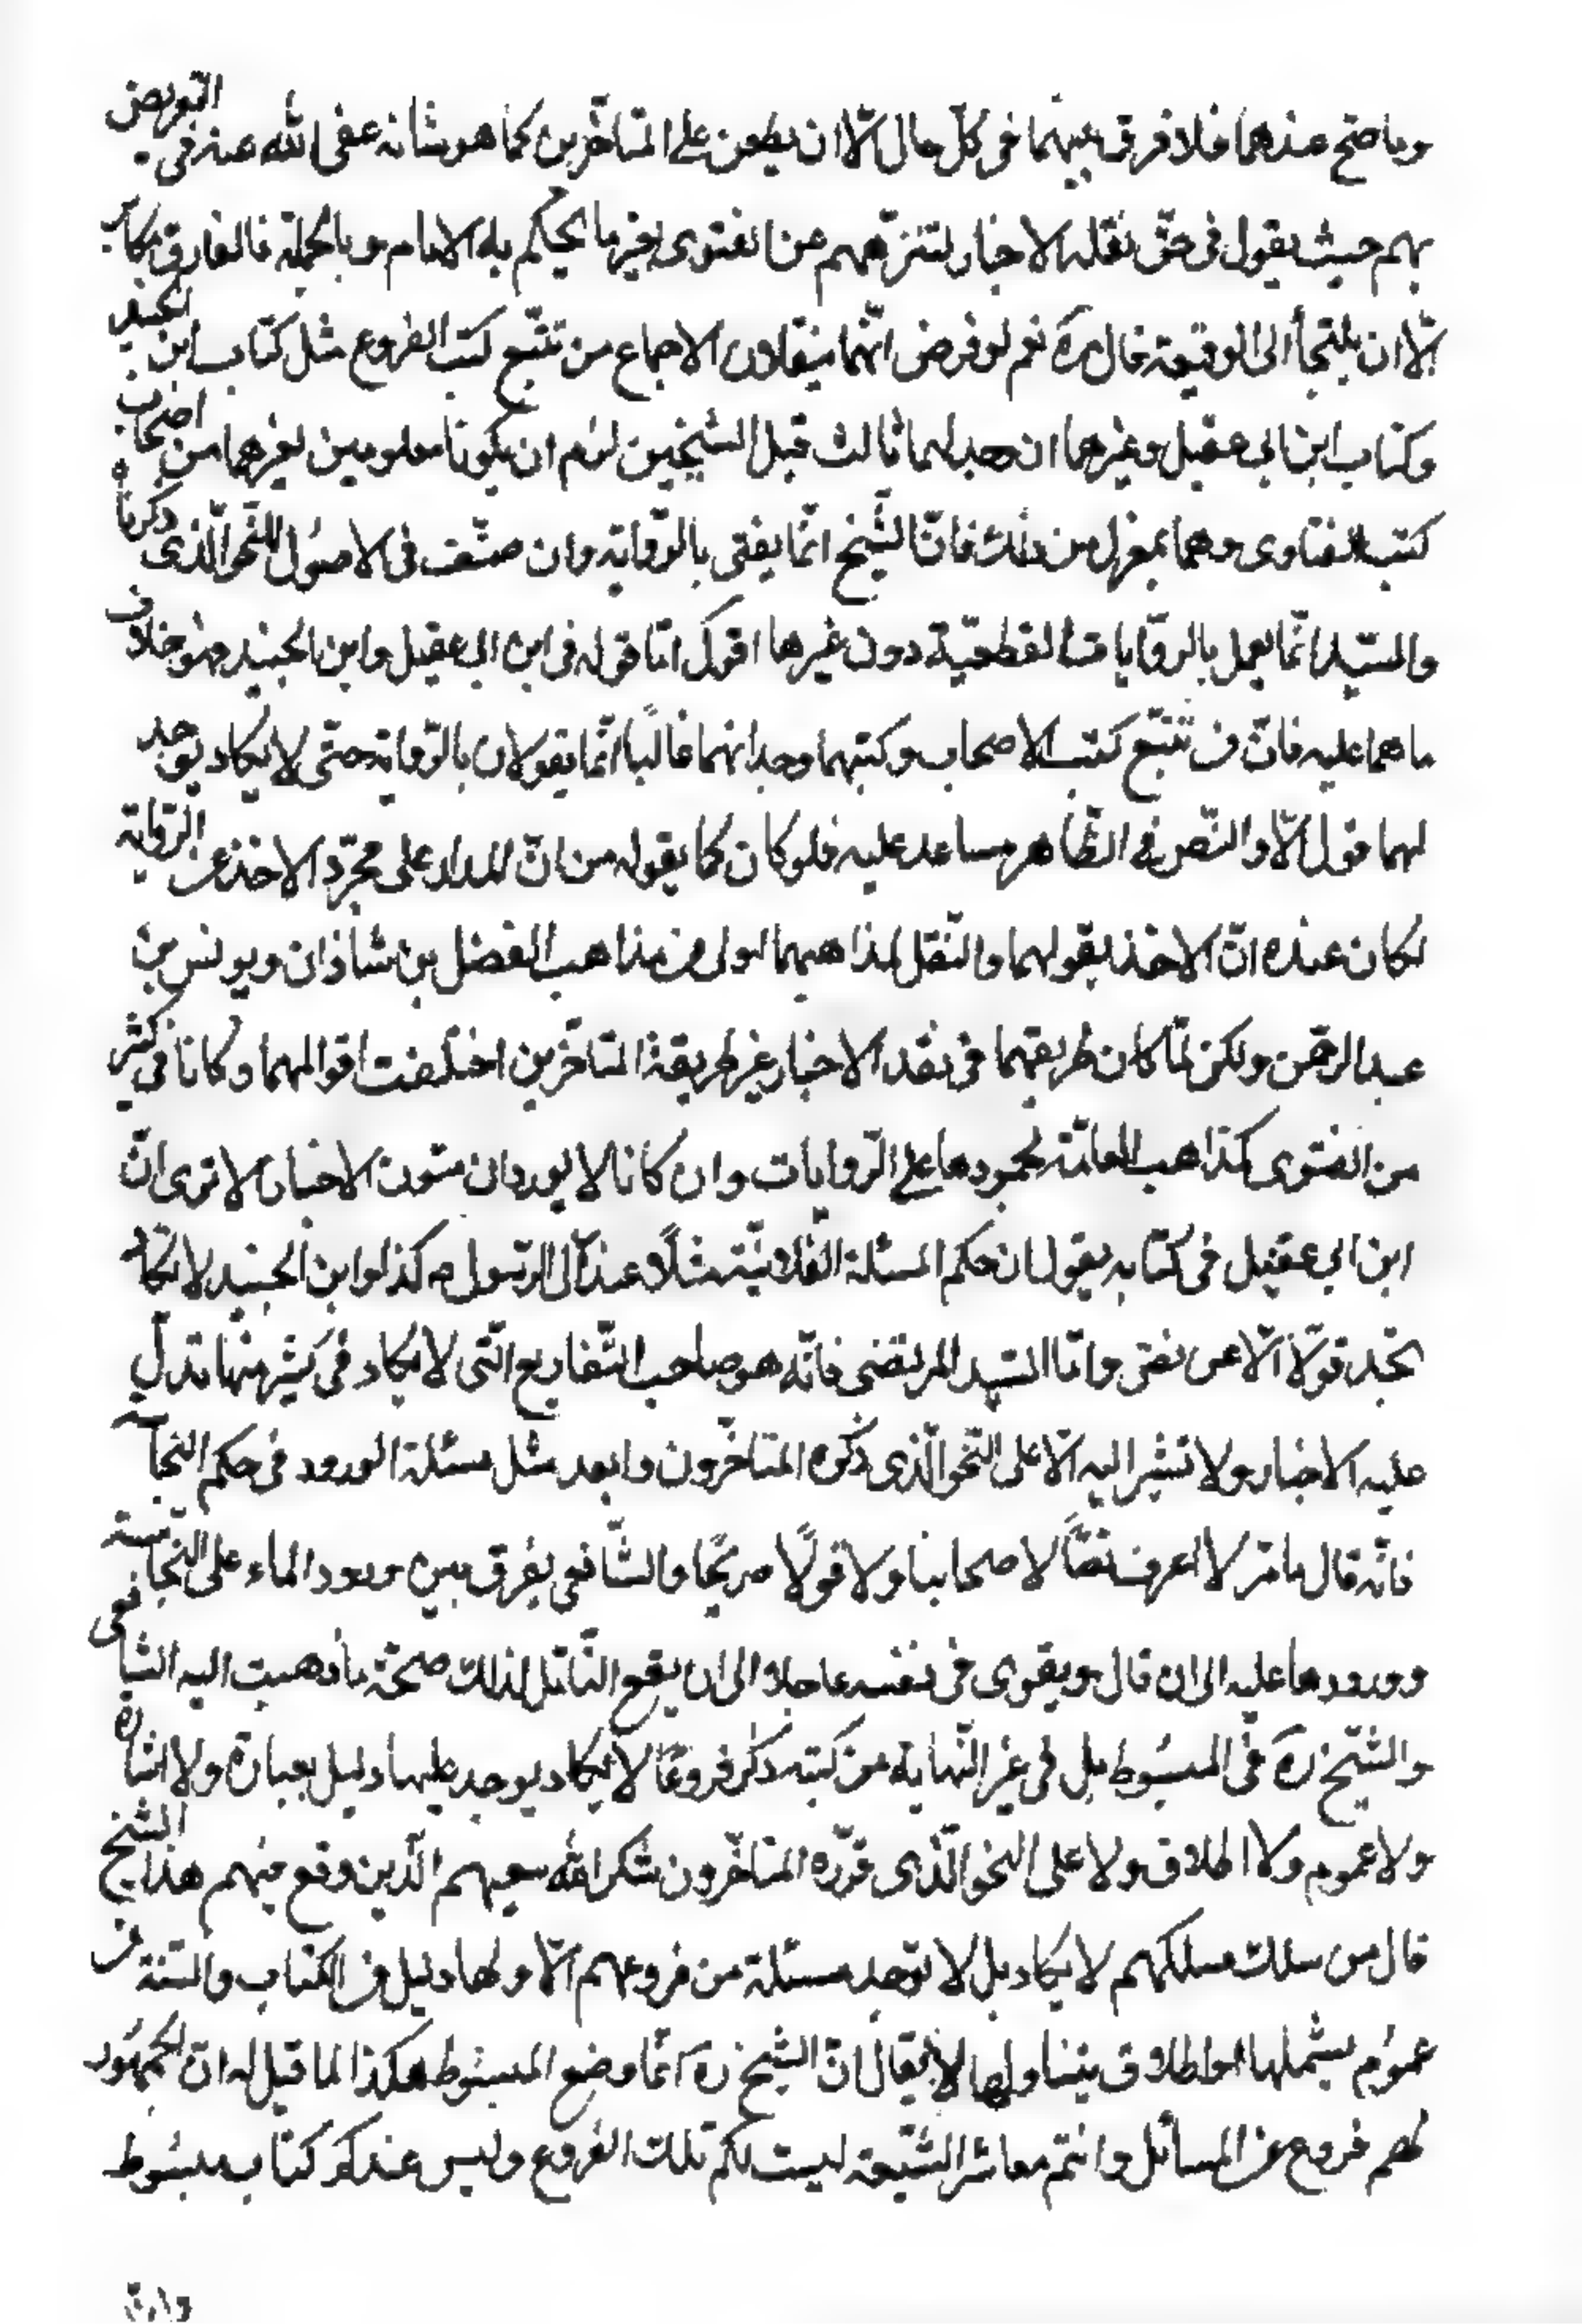 وما صح عندهما فلا فرق بينهما في كل حال الّا ان يطعن على المتاخّرين كما هو شانه عفى الله عنه في التعريض
بهم حيث يقول في حقّ نقله الاخبار لتنزّههم عن الفتوى بغير ما يحكم به الامام وبالجملة فالفارق مكابر
الّا ان يلتجأ الى الوقيعة قال ره نعم لو فرض انّهما ينقلان الاجماع من تتبّع كتب الفروع مثل كتاب ابن الجنيد
وكتاب ابن ابي عقيل وغيرهما ان وجد لهما ثالث قبل الشيخين لزم ان يكونا معلومين لغيرهما من اضراب
كتب الفتاوى وهما بمعزل من ذلك فانّ الشّيخ انّما يفتى بالرّواية وان صنّف في الاصول للنّحو الّذى ذكرناه
والسّيد انّما يعمل بالرّوايات القطعيّة دون غيرها اقول امّا قوله في ابن ابي عقيل وابن الجنيد فهو خلاف
ما هما عليه فانّ من تتبّع كتب الاصحاب وكتبهما وجد انهما غالبًا انّما يقولان بالرّواية حتّى لا يكاد يوجد
لهما قول الّا والنّص في الظّاهر مساعد عليه فلو كان كما يقوله من انّ المدار على مجرّد الاخذ عن الرّواية
لكان عنده انّ الاخذ بقولهما والنّقل لمذاهبهما اولى من مذاهب الفضل بن شاذان ويونس بن
عبد الرحمن ولكن لمّا كان طريقهما في نقد الاخبار غير طريقة المتاخّرين اختلفت اقوالهما وكانا في كثير
من الفتوى كمذاهب العامّة لجمودها على الرّوايات وان كانا لا يوردان متون الاخبار الا ترى انّ
ابن ابي عقيل في كتابه يقول ان حكم المسئلة الفلانيّة مثلًا عند آل الرّسول ص كذا وابن الجنيد لا تكاد
تجد قولًا الّا عن نصّ وامّا السّيد المرتضى فانّه هو صاحب التّفاريع الّتى لا يكاد في كثير منها تدلّ
عليه الاخبار ولا تشير اليه الّا على النّحو الّذى ذكره المتاخّرون وابعد مثل مسئلة الورود في حكم النجاسة
فانّه قال ما مرّ لا اعرف نصًّا لاصحابنا ولا قولًا صريحًا والشّافعي يفرق بين ورود الماء على النّجاسة
وورودها عليه الى ان قال ويقوى في نفسه عاجلا الى ان يقع التّامّل لذلك صحّة ما ذهبت اليه الشافعي
والشّيخ ره في المبسوط بل في غير النّهاية من كتبه ذكر فروعًا لا يكاد يوجد عليها دليل بعبارة ولا اشارة
ولا عموم ولا اطلاق ولا على النحو الّذى قرّره المتاخّرون شكر الله سعيهم الّذين وقع فيهم هذا الشيخ
قال من سلك مسلكهم لا يكاد بل لا توجد مسئلة من فروعهم الّا ولها دليل من الكتاب والسّنة من
عموم يشملها او اطلاق يتناولها لا يقال انّ الشّيخ ره انّما وضع المبسوط هكذا لما قيل له انّ الجمهور
لهم فروع عن المسائل وانتم معاشر الشّيعة ليست لكم تلك الفروع وليس عندكم كتاب مبسوط